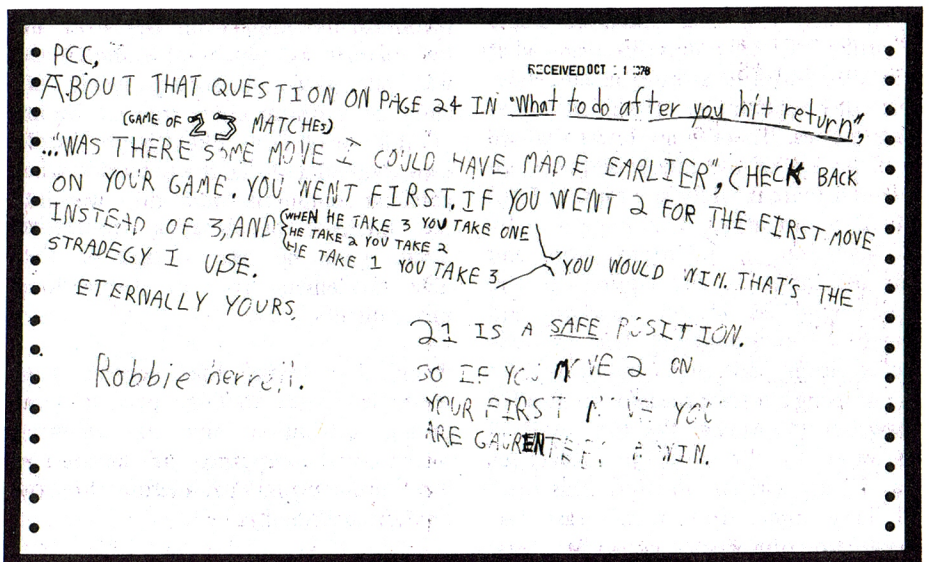 PCC,
RECEIVED OCT
ABOUT THAT QUESTION ON PAGE 24 IN "What to do after you hit return",
(GAME OF 23 MATCHES)
..."WAS THERE SOME MOVE I COULD HAVE MADE EARLIER", CHECK BACK
ON YOUR GAME. YOU WENT FIRST. IF YOU WENT 2 FOR THE FIRST MOVE
INSTEAD OF 3, AND
WHEN HE TAKE 3 YOU TAKE ONE
HE TAKE 2 YOU TAKE 2
HE TAKE 1 YOU TAKE 3
YOU WOULD WIN. THAT'S THE
STRADEGY I USE.
ETERNALLY YOURS,
Robbie
21 IS A SAFE POSITION.
SO IF YOU MOVE 2 ON
YOUR FIRST MOVE YOU
ARE GAURENTEED A WIN.